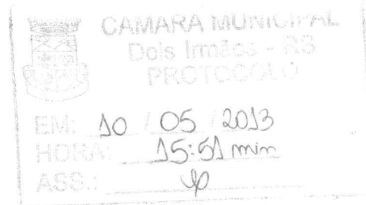 CAMARA MUNICIPAL
Dois Irmãos - RS
PROTOCOLO
EM: 10 / 05 / 2013
HORA: 15:51 min
ASS.: